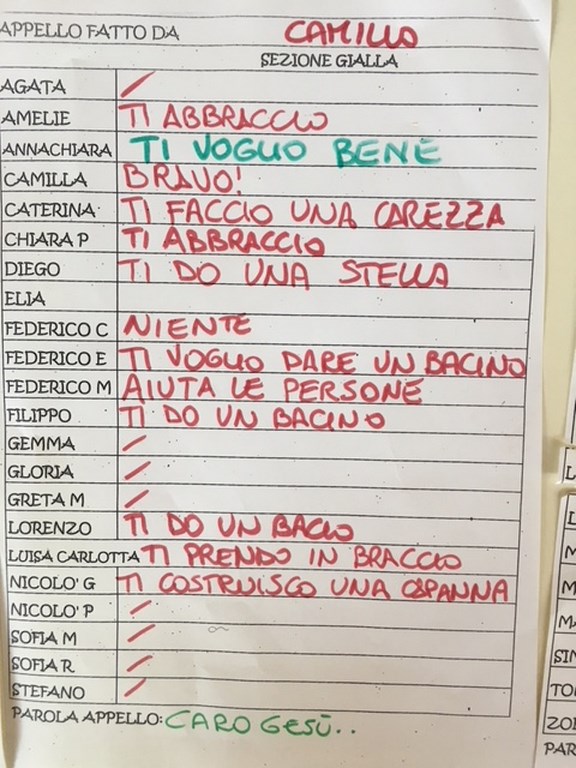 APPELLO FATTO DA CAMILLO
SEZIONE GIALLA
AGATA /
AMELIE TI ABBRACCIO
ANNACHIARA TI VOGLIO BENE
CAMILLA BRAVO!
CATERINA TI FACCIO UNA CAREZZA
CHIARA P TI ABBRACCIO
DIEGO TI DO UNA STELLA
ELIA
FEDERICO C NIENTE
FEDERICO E TI VOGLIO DARE UN BACINO
FEDERICO M AIUTA LE PERSONE
FILIPPO TI DO UN BACINO
GEMMA /
GLORIA /
GRETA M /
LORENZO TI DO UN BACIO
LUISA CARLOTTA TI PRENDO IN BRACCIO
NICOLO' G TI COSTRUISCO UNA CAPANNA
NICOLO' P /
SOFIA M /
SOFIA R /
STEFANO /
PAROLA APPELLO: CARO GESÙ..